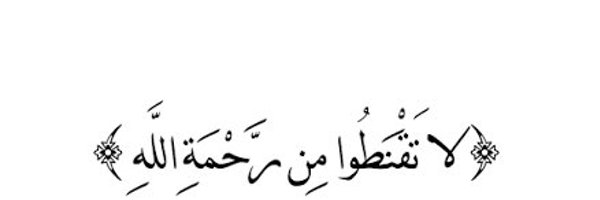 ﴿لَا تَقْنَطُوا مِن رَّحْمَةِ اللَّهِ﴾